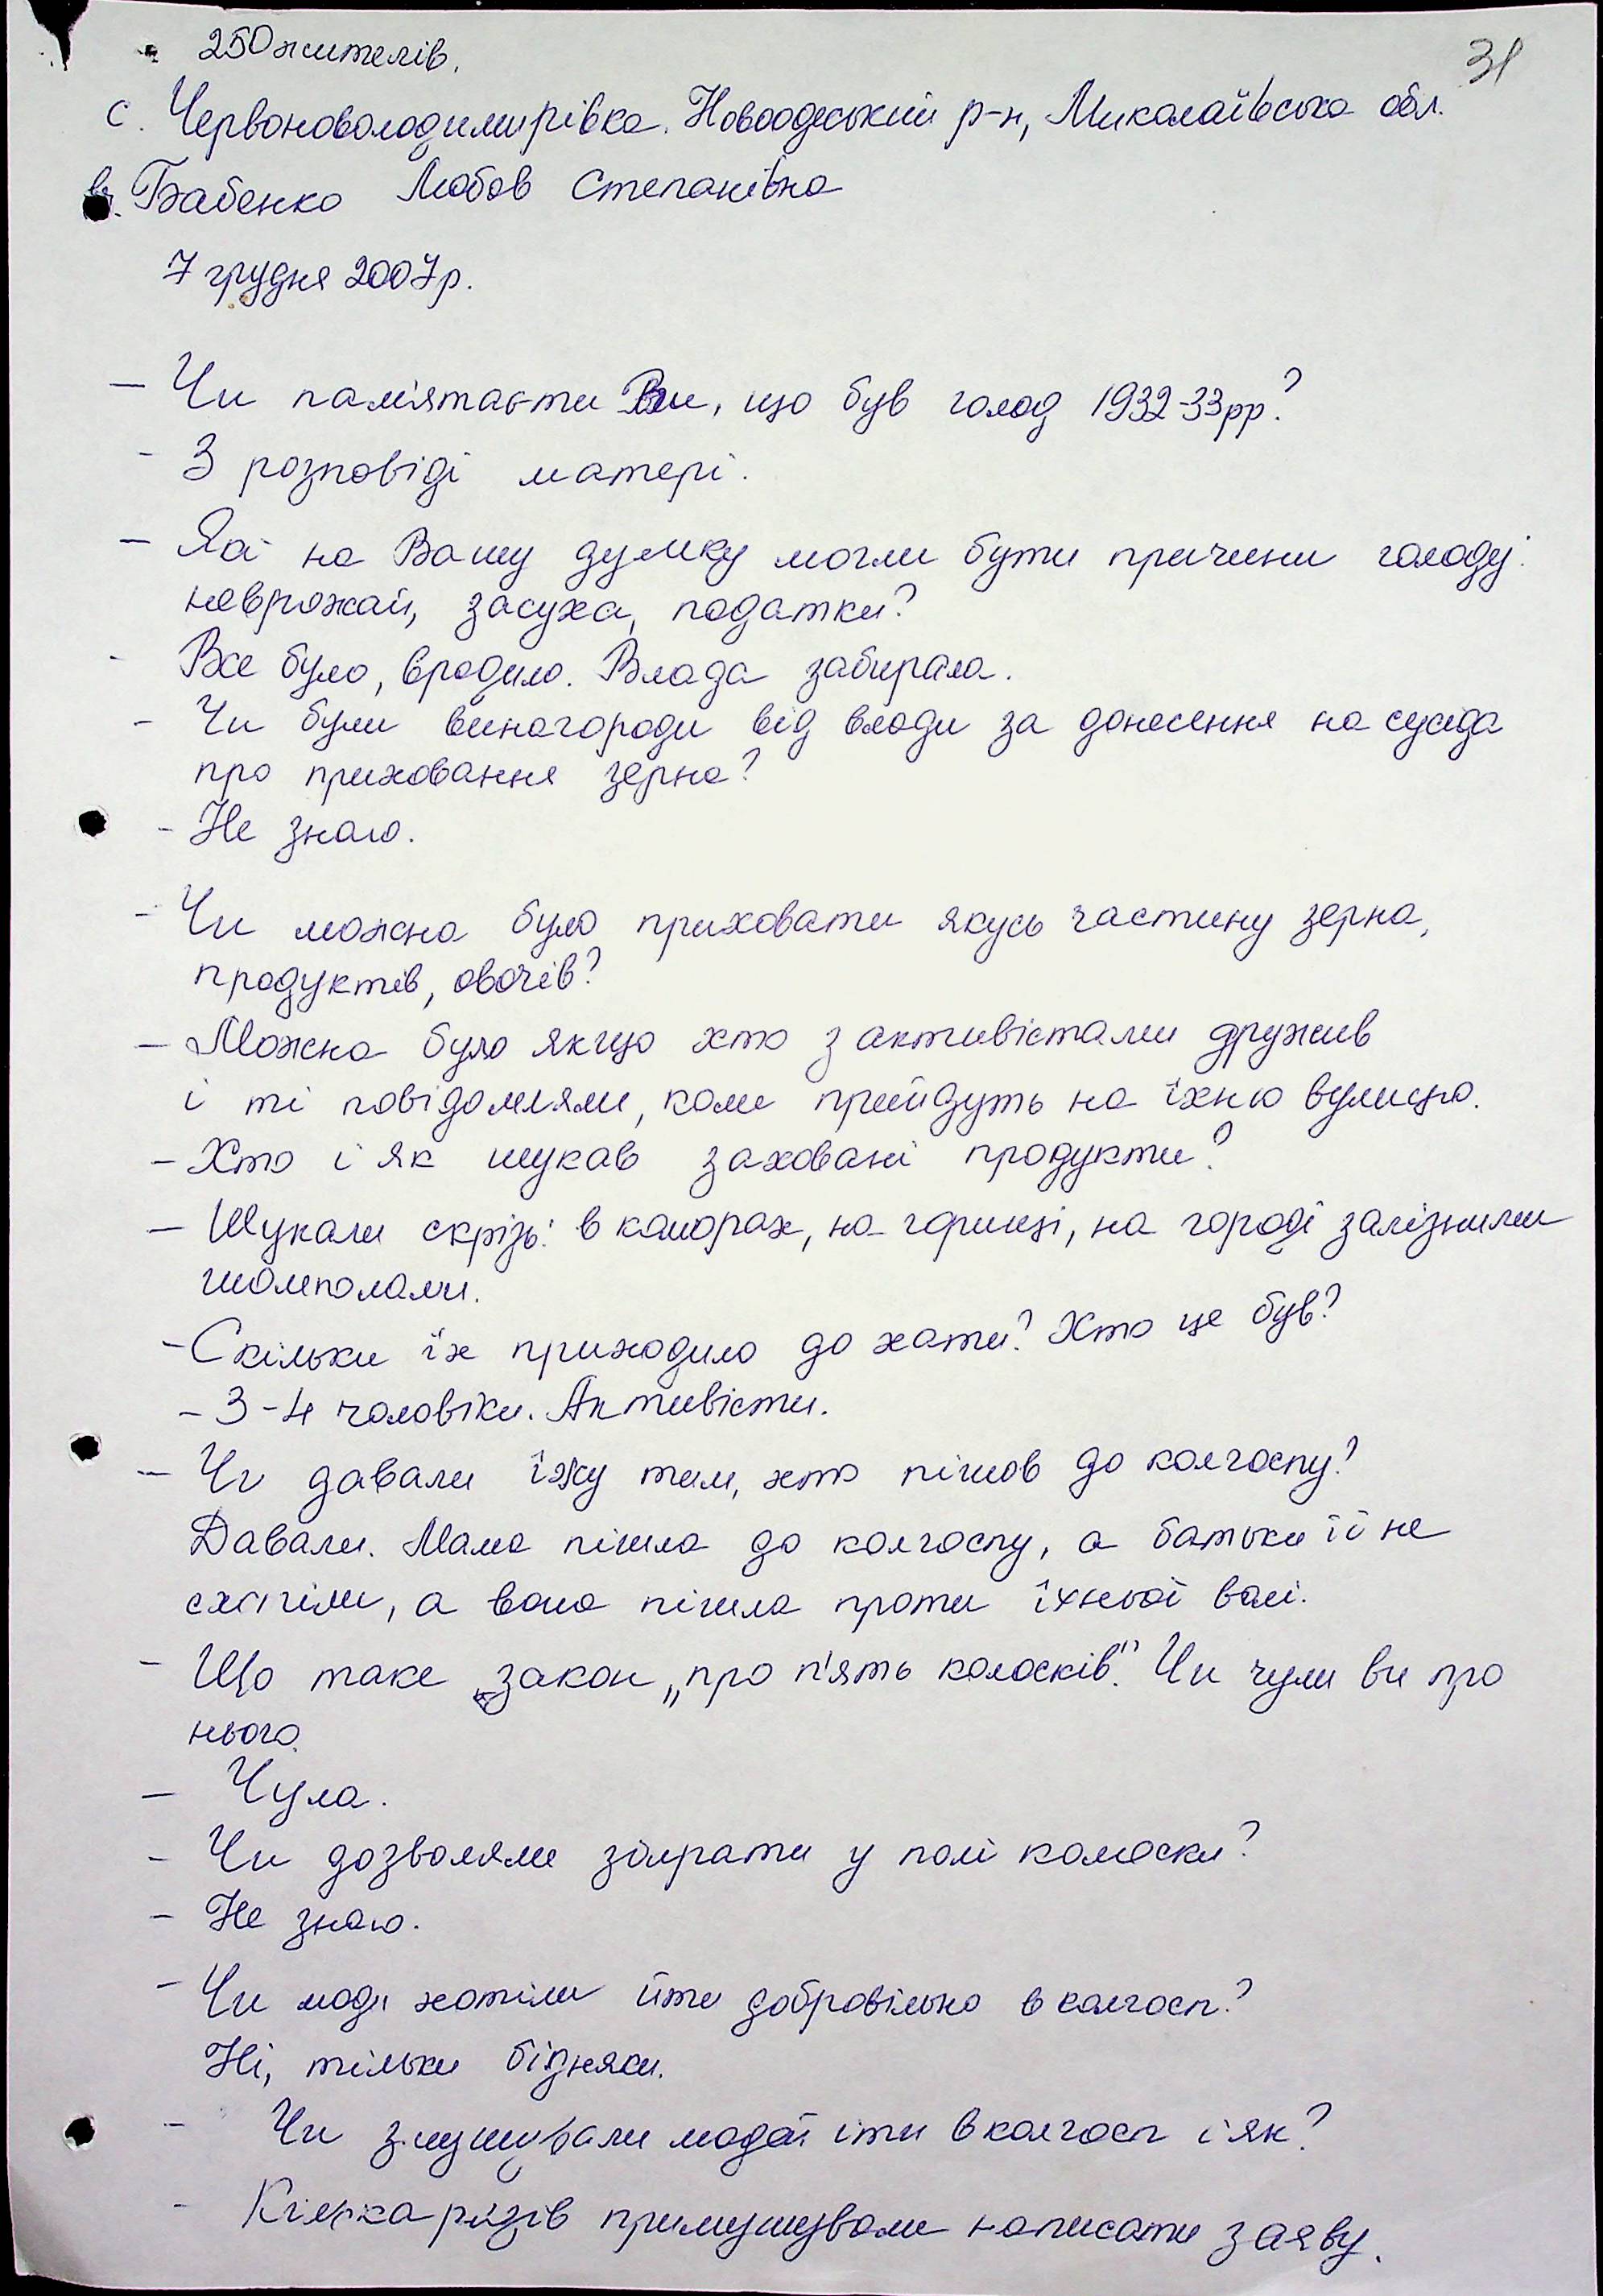 250 жителів.
31
с. Червоноволодимирівка. Новоодеський р-н, Миколаївська обл.
Бабенко Любов Степанівна
7 грудня 2007р.
— Чи пам'ятаєти Ви, що був голод 1932-33рр?
- З розповіді матері.
— Які на Вашу думку могли бути причини голоду:
неврожай, засуха, податки?
- Все було, вродило. Влада забирала.
- Чи були винагороди від влади за донесення на сусіда
про приховання зерна?
- Не знаю.
- Чи можна було приховати якусь частину зерна,
продуктів, овочів?
— Можна було якщо хто з активістами дружив
і ті повідомляли, коли прийдуть на їхню вулицю.
— Хто і як шукав заховані продукти?
— Шукали скрізь: в коморах, на горищі, на городі залізними
шомполами.
- Скільки їх приходило до хати? Хто це був?
- 3-4 чоловіки. Активісти.
— Чи давали їжу тим, хто пішов до колгоспу?
Давали. Мама пішла до колгоспу, а батьки її не
схотіли, а вона пішла проти їхньої волі.
- Що таке закон „про п'ять колосків". Чи чули ви про
нього.
— Чула.
- Чи дозволяли збирати у полі колоски?
- Не знаю.
- Чи люди хотіли йти добровільно в колгосп?
Ні, тільки бідняки.
- Чи змушували людей іти в колгосп і як?
- Кілька разів примушували написати заяву.